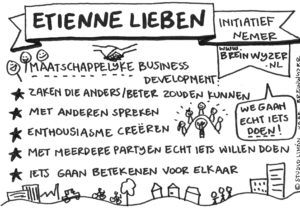 ETIENNE LIEBEN
INITIATIEF
NEMER
WWW.
BREINWYZER
.NL
MAATSCHAPPELYKE BUSINESS
DEVELOPMENT!
★ ZAKEN DIE ANDERS/BETER ZOUDEN KUNNEN
★ MET ANDEREN SPREKEN
★ ENTHOUSIASME CREËREN
★ MET MEERDERE PARTYEN ECHT IETS WILLEN DOEN
★ IETS GAAN BETEKENEN VOOR ELKAAR
WE GAAN
ECHT IETS
DOEN!